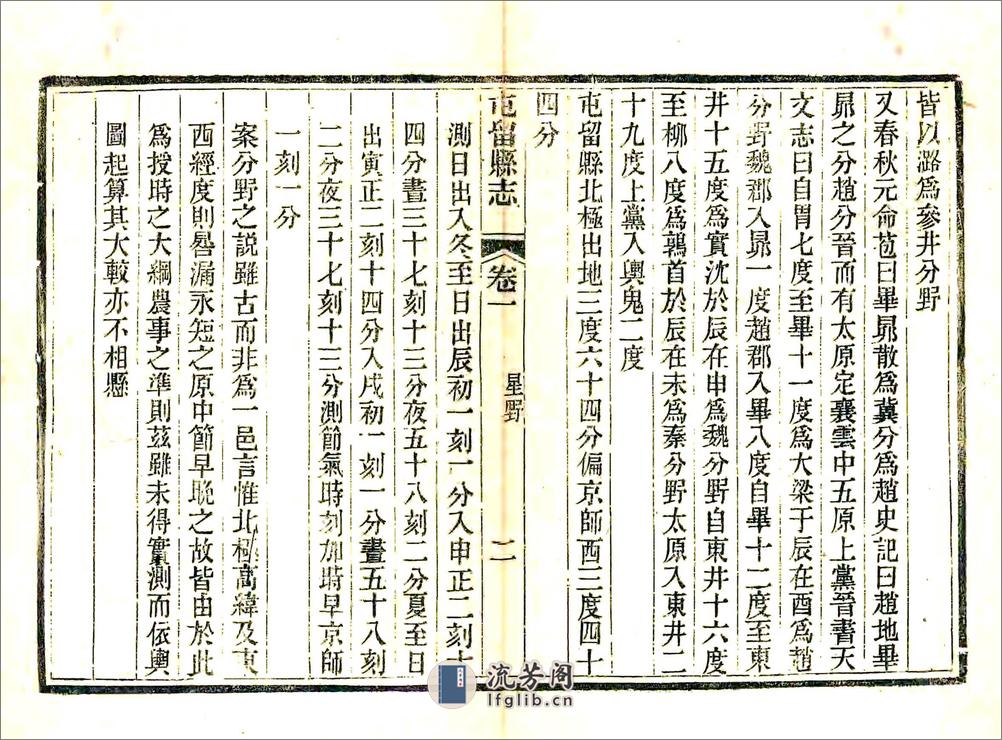 皆以潞爲參井分野
又春秋元命苞曰畢昴散爲冀分爲趙史記曰趙地畢
昴之分趙分晉而有太原定襄雲中五原上黨晉書天
文志曰自胃七度至畢十一度爲大梁于辰在酉爲趙
分野魏郡入昴一度趙郡入畢八度自畢十二度至東
井十五度爲實沈於辰在申爲魏分野自東井十六度
至柳八度爲鶉首於辰在未爲秦分野太原入東井二
十九度上黨入輿鬼二度
屯留縣北極出地三度六十四分偏京師西三度四十
四分
屯留縣志
卷一
星野
二
測日出入冬至日出辰初一刻一分入申正二刻十
四分晝三十七刻十三分夜五十八刻二分夏至日
出寅正二刻十四分入戌初一刻一分晝五十八刻
二分夜三十七刻十三分測節氣時刻加時早京師
一刻一分
案分野之説雖古而非爲一邑言惟北極高緯及東
西經度則晷漏永短之原中節早晚之故皆由於此
爲授時之大綱農事之準則茲雖未得實測而依輿
圖起算其大較亦不相懸
流芳阁
lfglib.cn